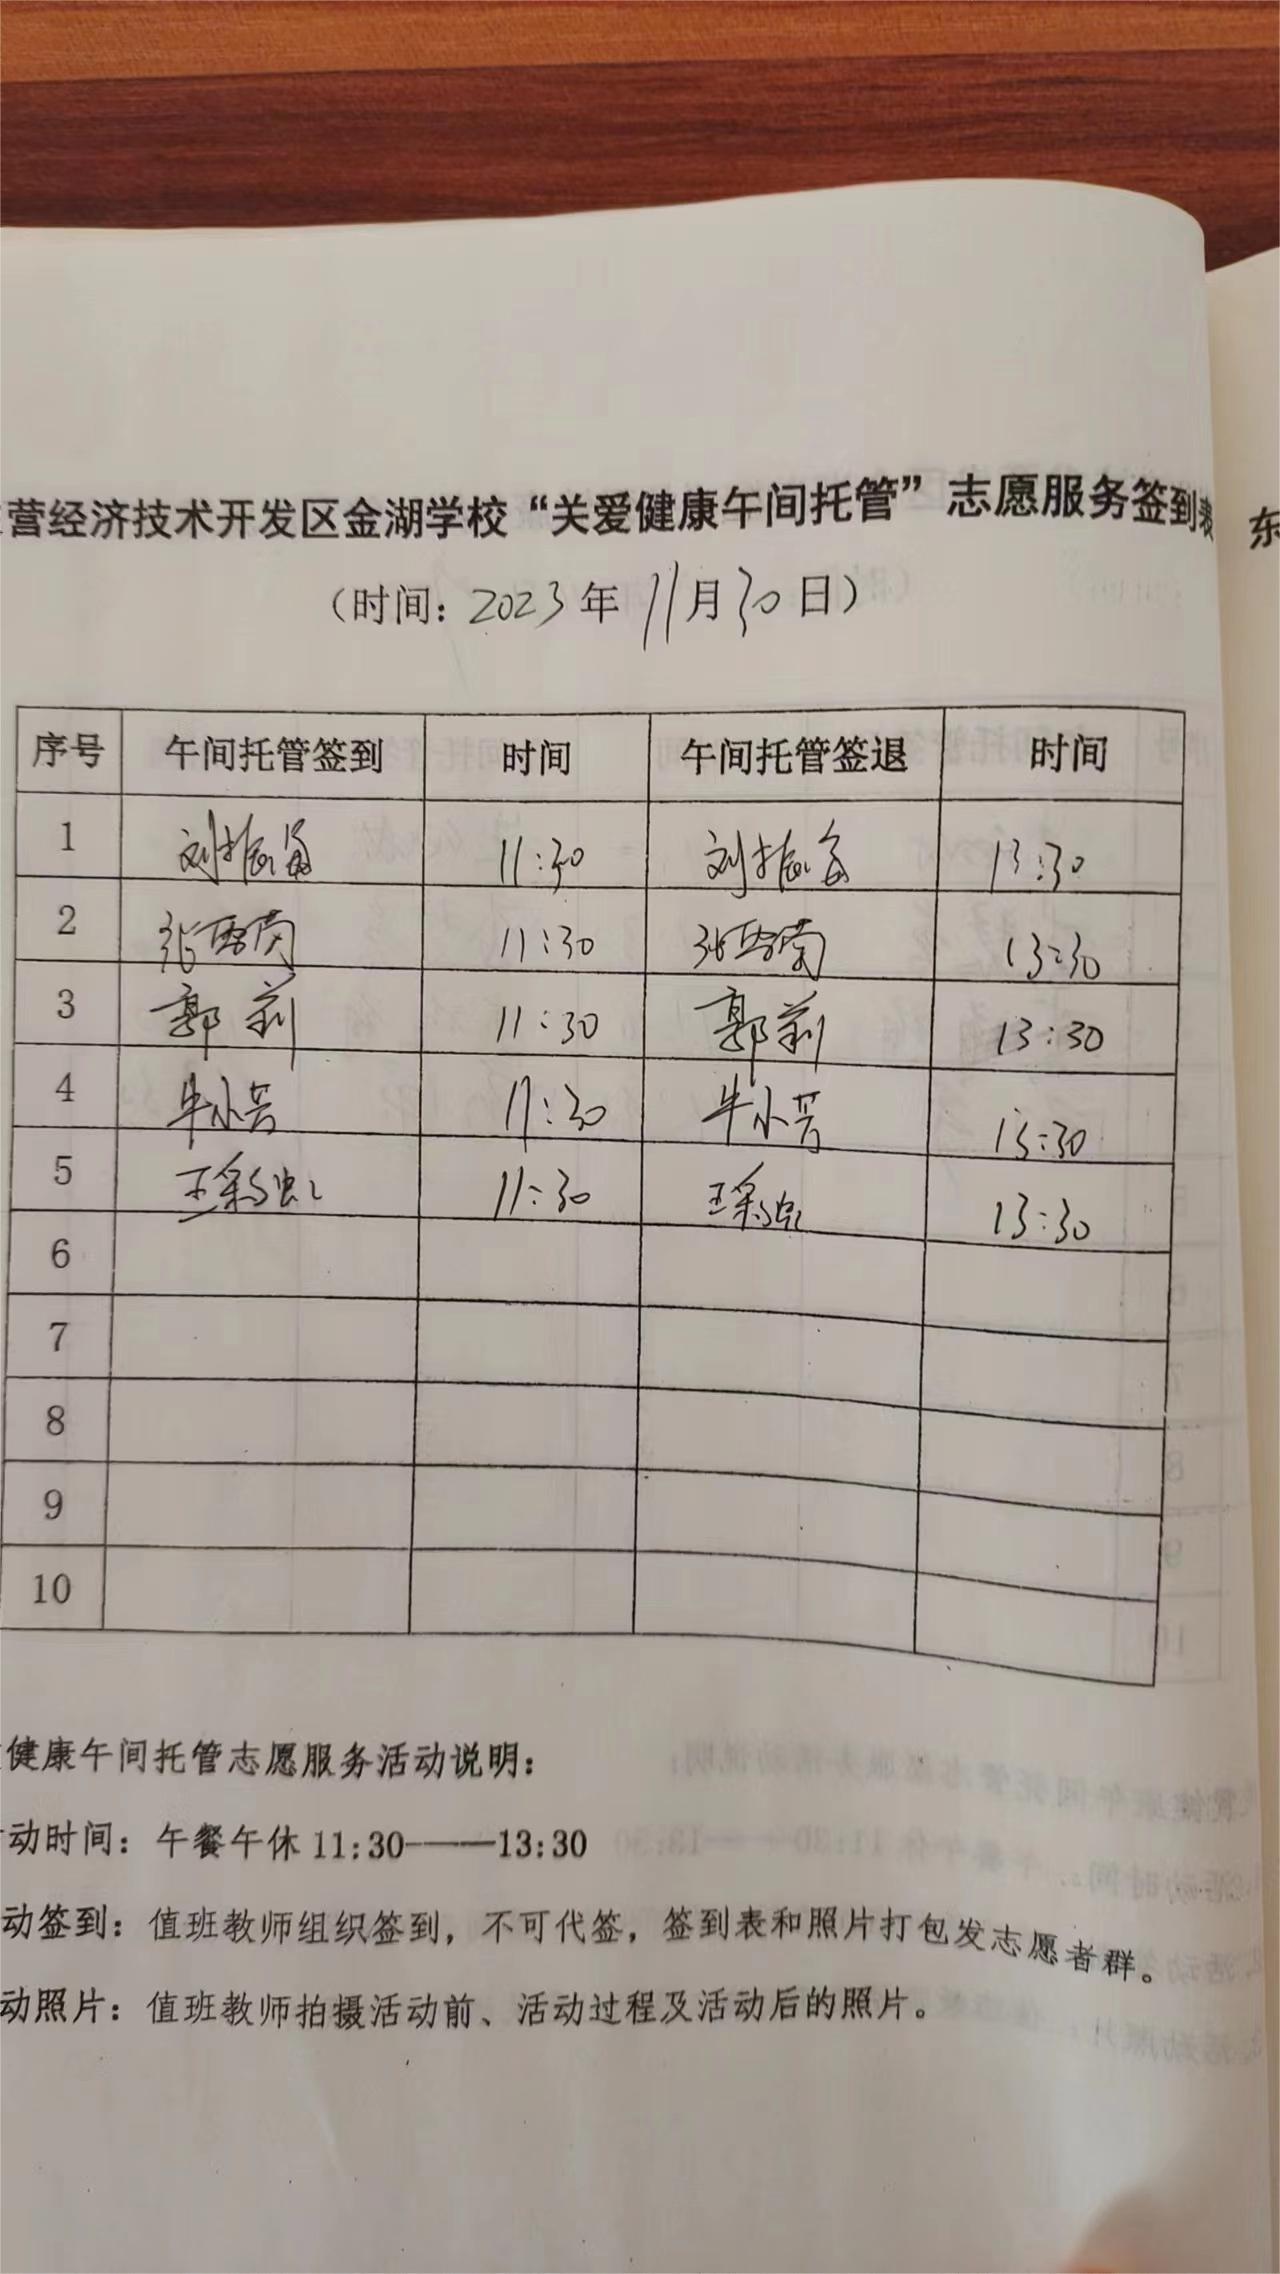 营经济技术开发区金湖学校“关爱健康午间托管”志愿服务签到表
东
（时间：2023年 11月30日）
序号 午间托管签到 时间 午间托管签退 时间
1 刘振海 11:30 刘振海 13:30
2 11:30 13:30
3 郭莉 11:30 郭莉 13:30
4 牛小芳 11:30 牛小芳 13:30
5 王彩虹 11:30 王彩虹 13:30
6
7
8
9
10
健康午间托管志愿服务活动说明：
动时间：午餐午休 11:30——13:30
动签到：值班教师组织签到，不可代签，签到表和照片打包发志愿者群。
动照片：值班教师拍摄活动前、活动过程及活动后的照片。